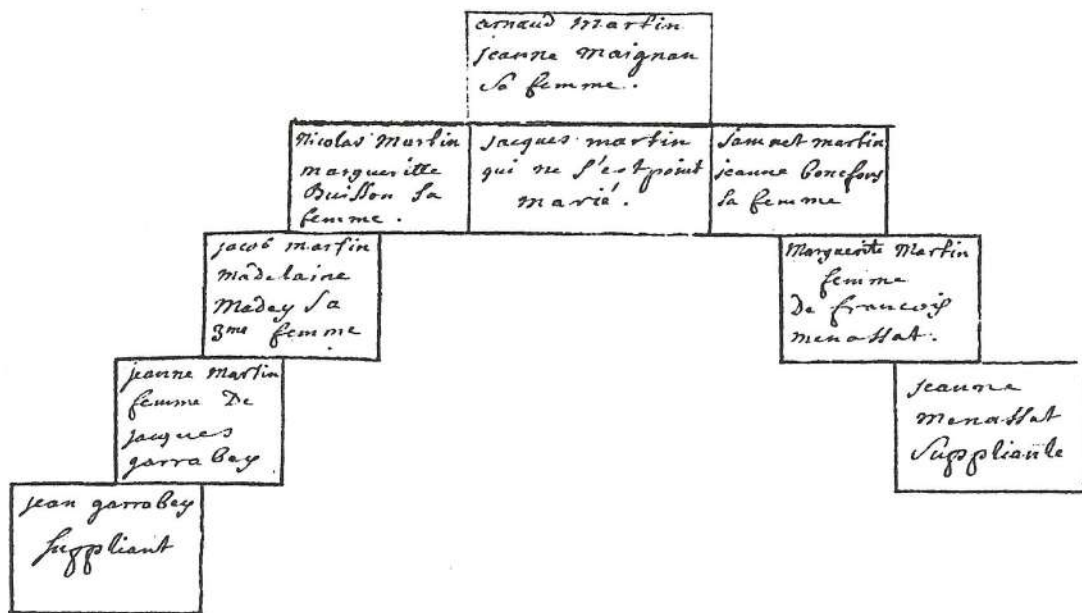 arnaud Martin
jeanne maignan
Sa femme.
Nicolas Martin
margueritte
Buisson Sa
femme.
jacques martin
qui ne s'est point
marié.
Jammet martin
jeanne bonefons
Sa femme
jacob martin
madelaine
Madey Sa
3me femme
Marguerite Martin
femme
De francois
menassat.
jeanne Martin
femme De
jacques
garrabey
jeanne
menassat
Suppliante
jean garrabey
Suppliant